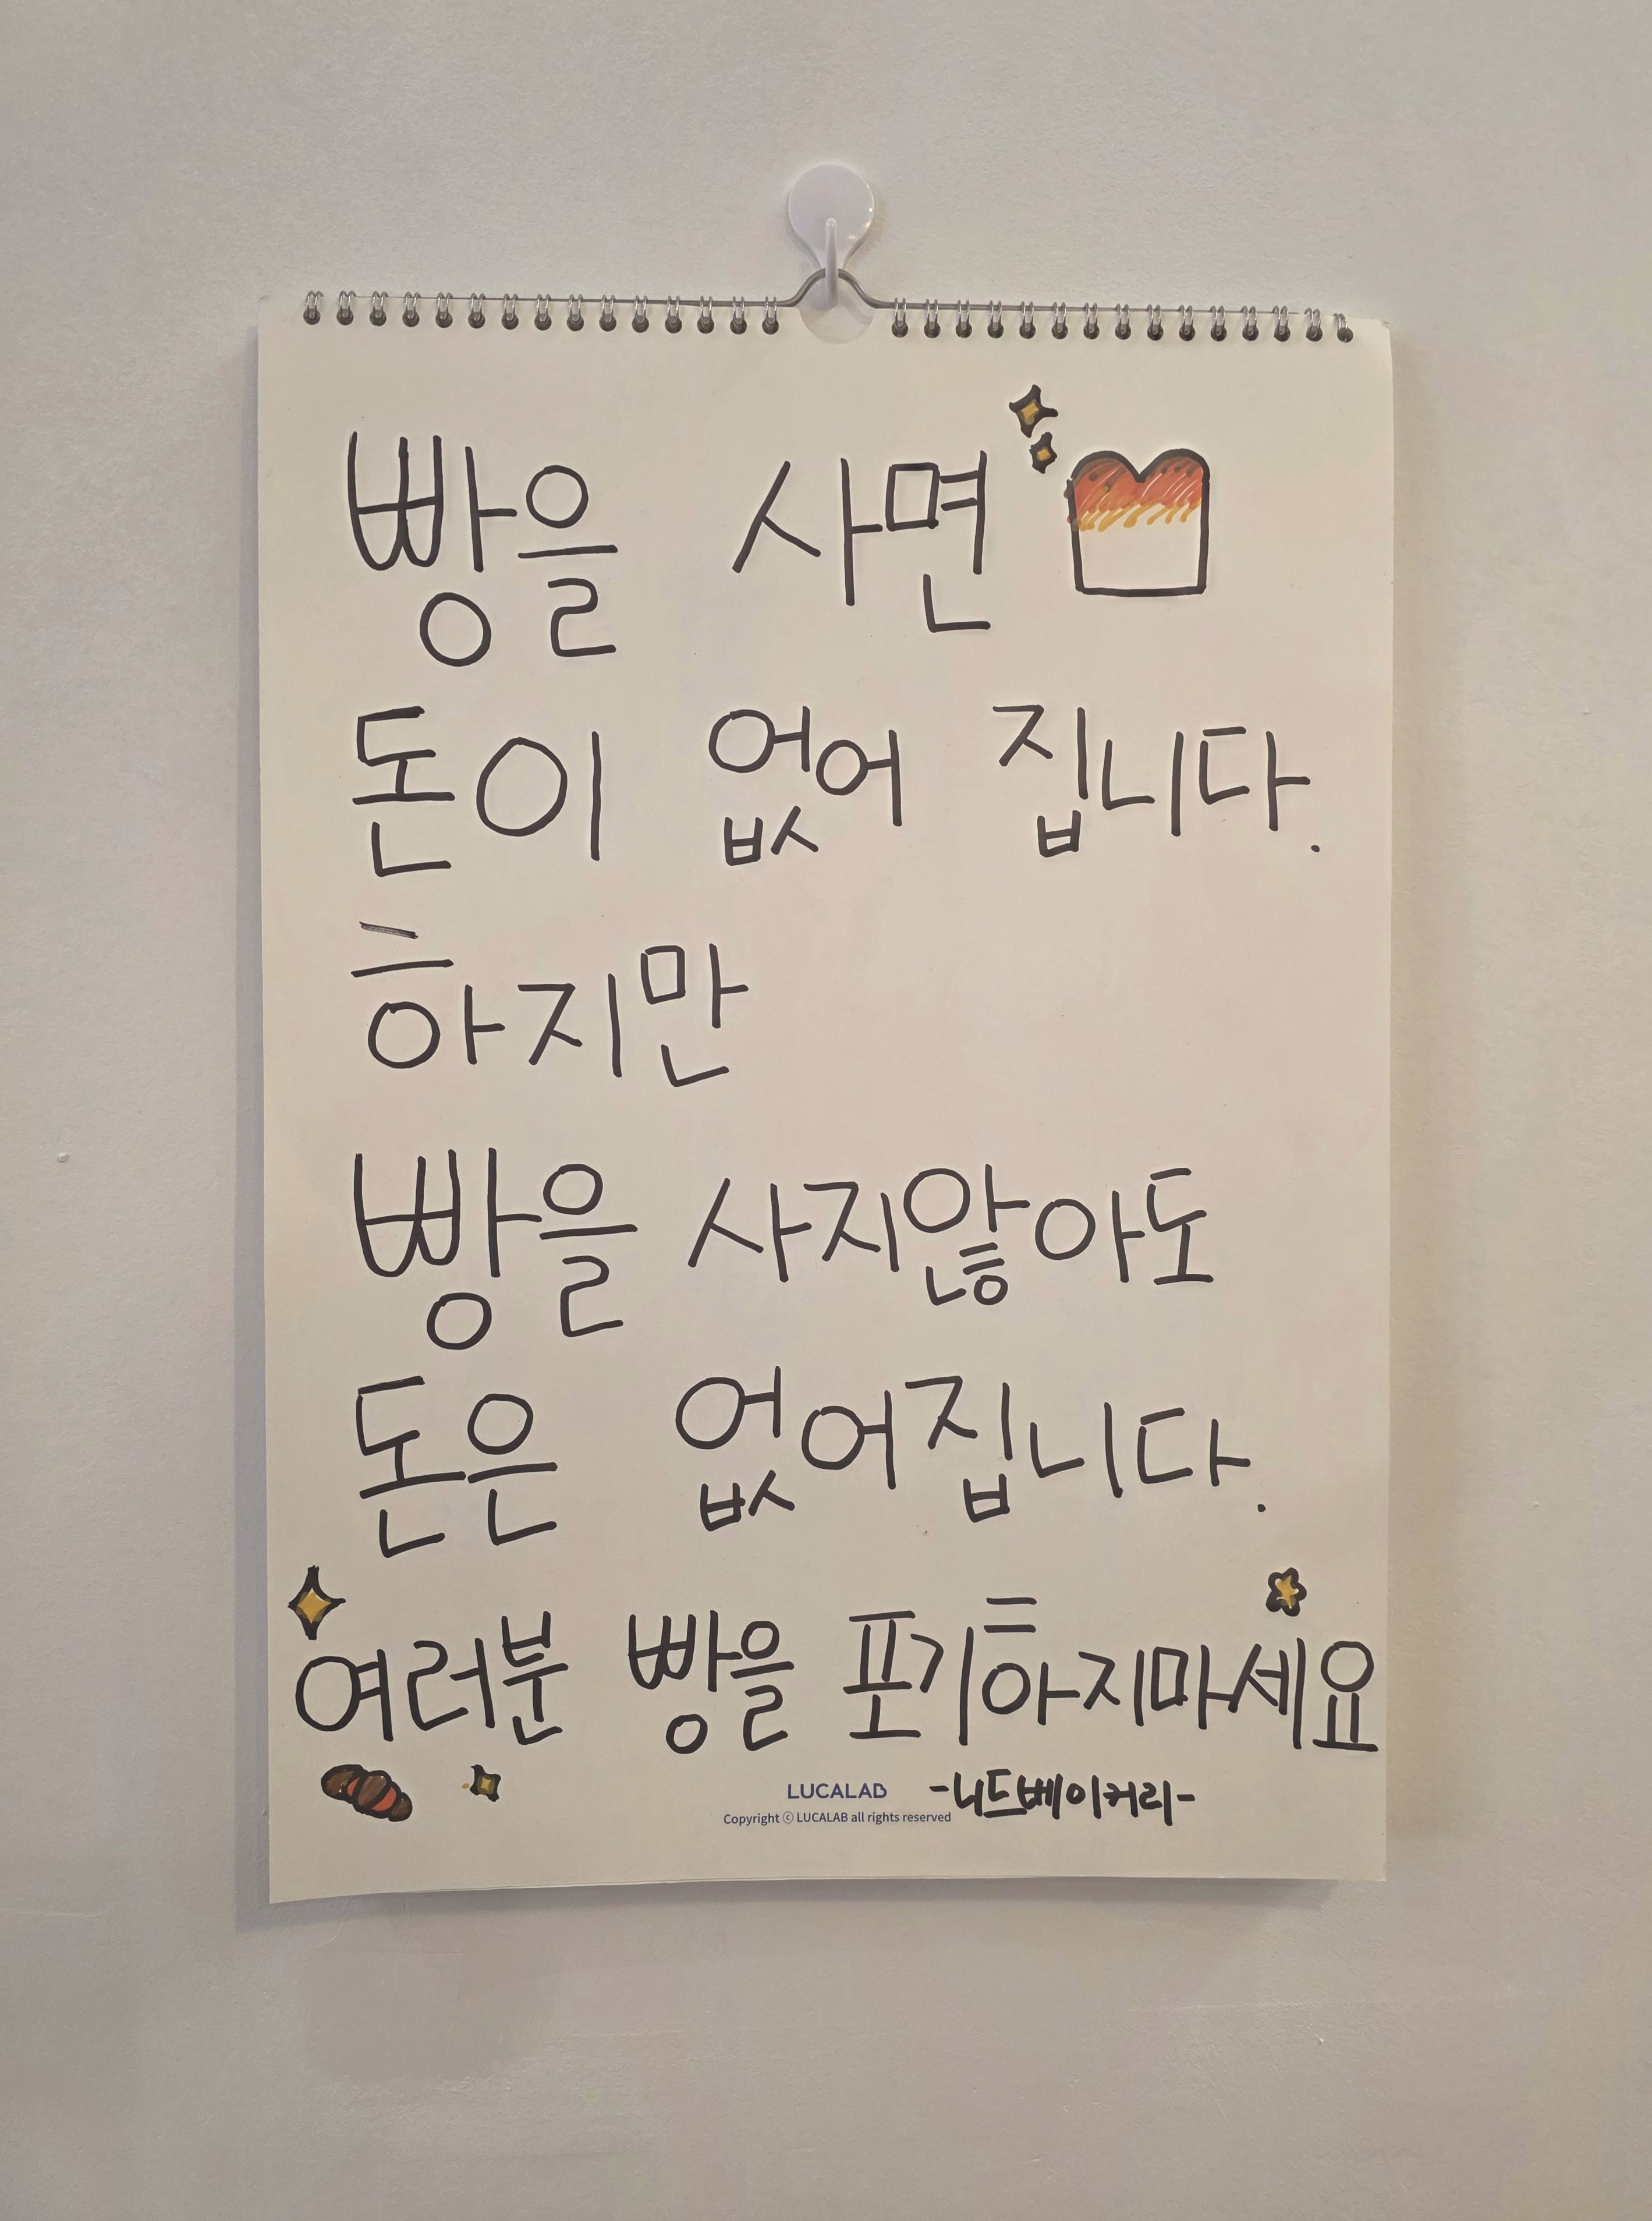 빵을 사면
돈이 없어 집니다.
하지만
빵을 사지않아도
돈은 없어집니다.
여러분 빵을 포기하지마세요
LUCALAB
-니드베이커리-
Copyright ⓒ LUCALAB all rights reserved